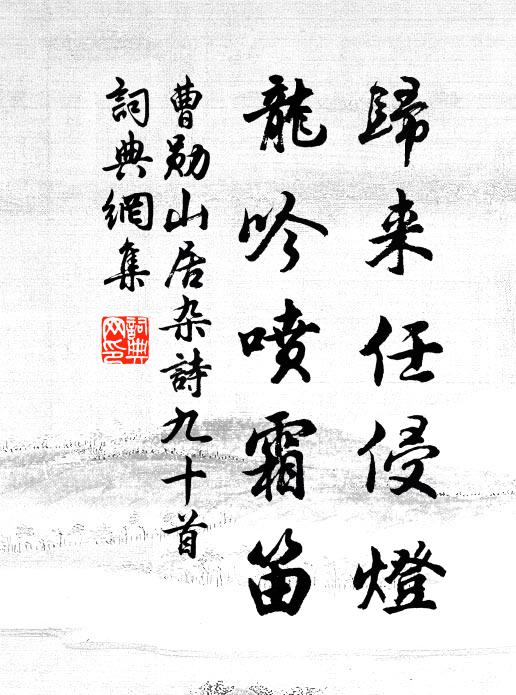 歸来任侵燈
龍吟噴霜笛
曹勛山居杂詩九十首
詞典網集
詞典网印